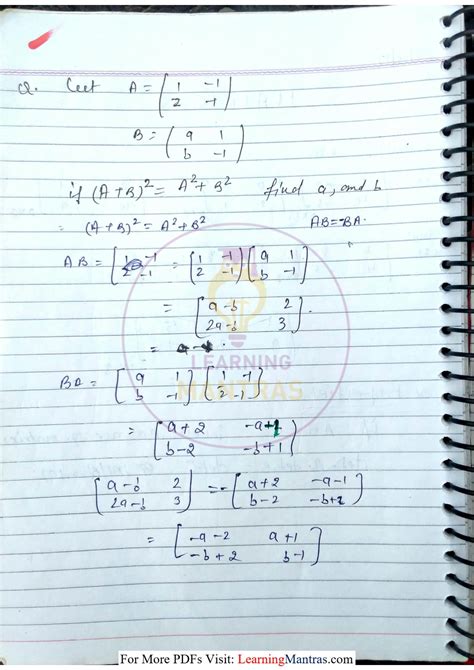 Q. Let A = (1 -1
2 -1)
B = (a 1
b -1)
if (A+B)² = A² + B² find a, and b
= (A+B)² = A² + B² AB = -BA.
AB = [1 -1 = (1 -1) [a 1
2 -1 2 -1) b -1]
= [a-b 2
2a-b 3].
= a-
LEARNING
MANTRAS
BA = [a 1] [1 -1]
b -1] [2 -1]
= [a+2 -a+1
b-2 -b+1)
[a-b 2] = -[a+2 -a-1]
2a-b 3] b-2 -b+2]
= [-a-2 a+1
-b+2 b-1]
For More PDFs Visit: LearningMantras.com